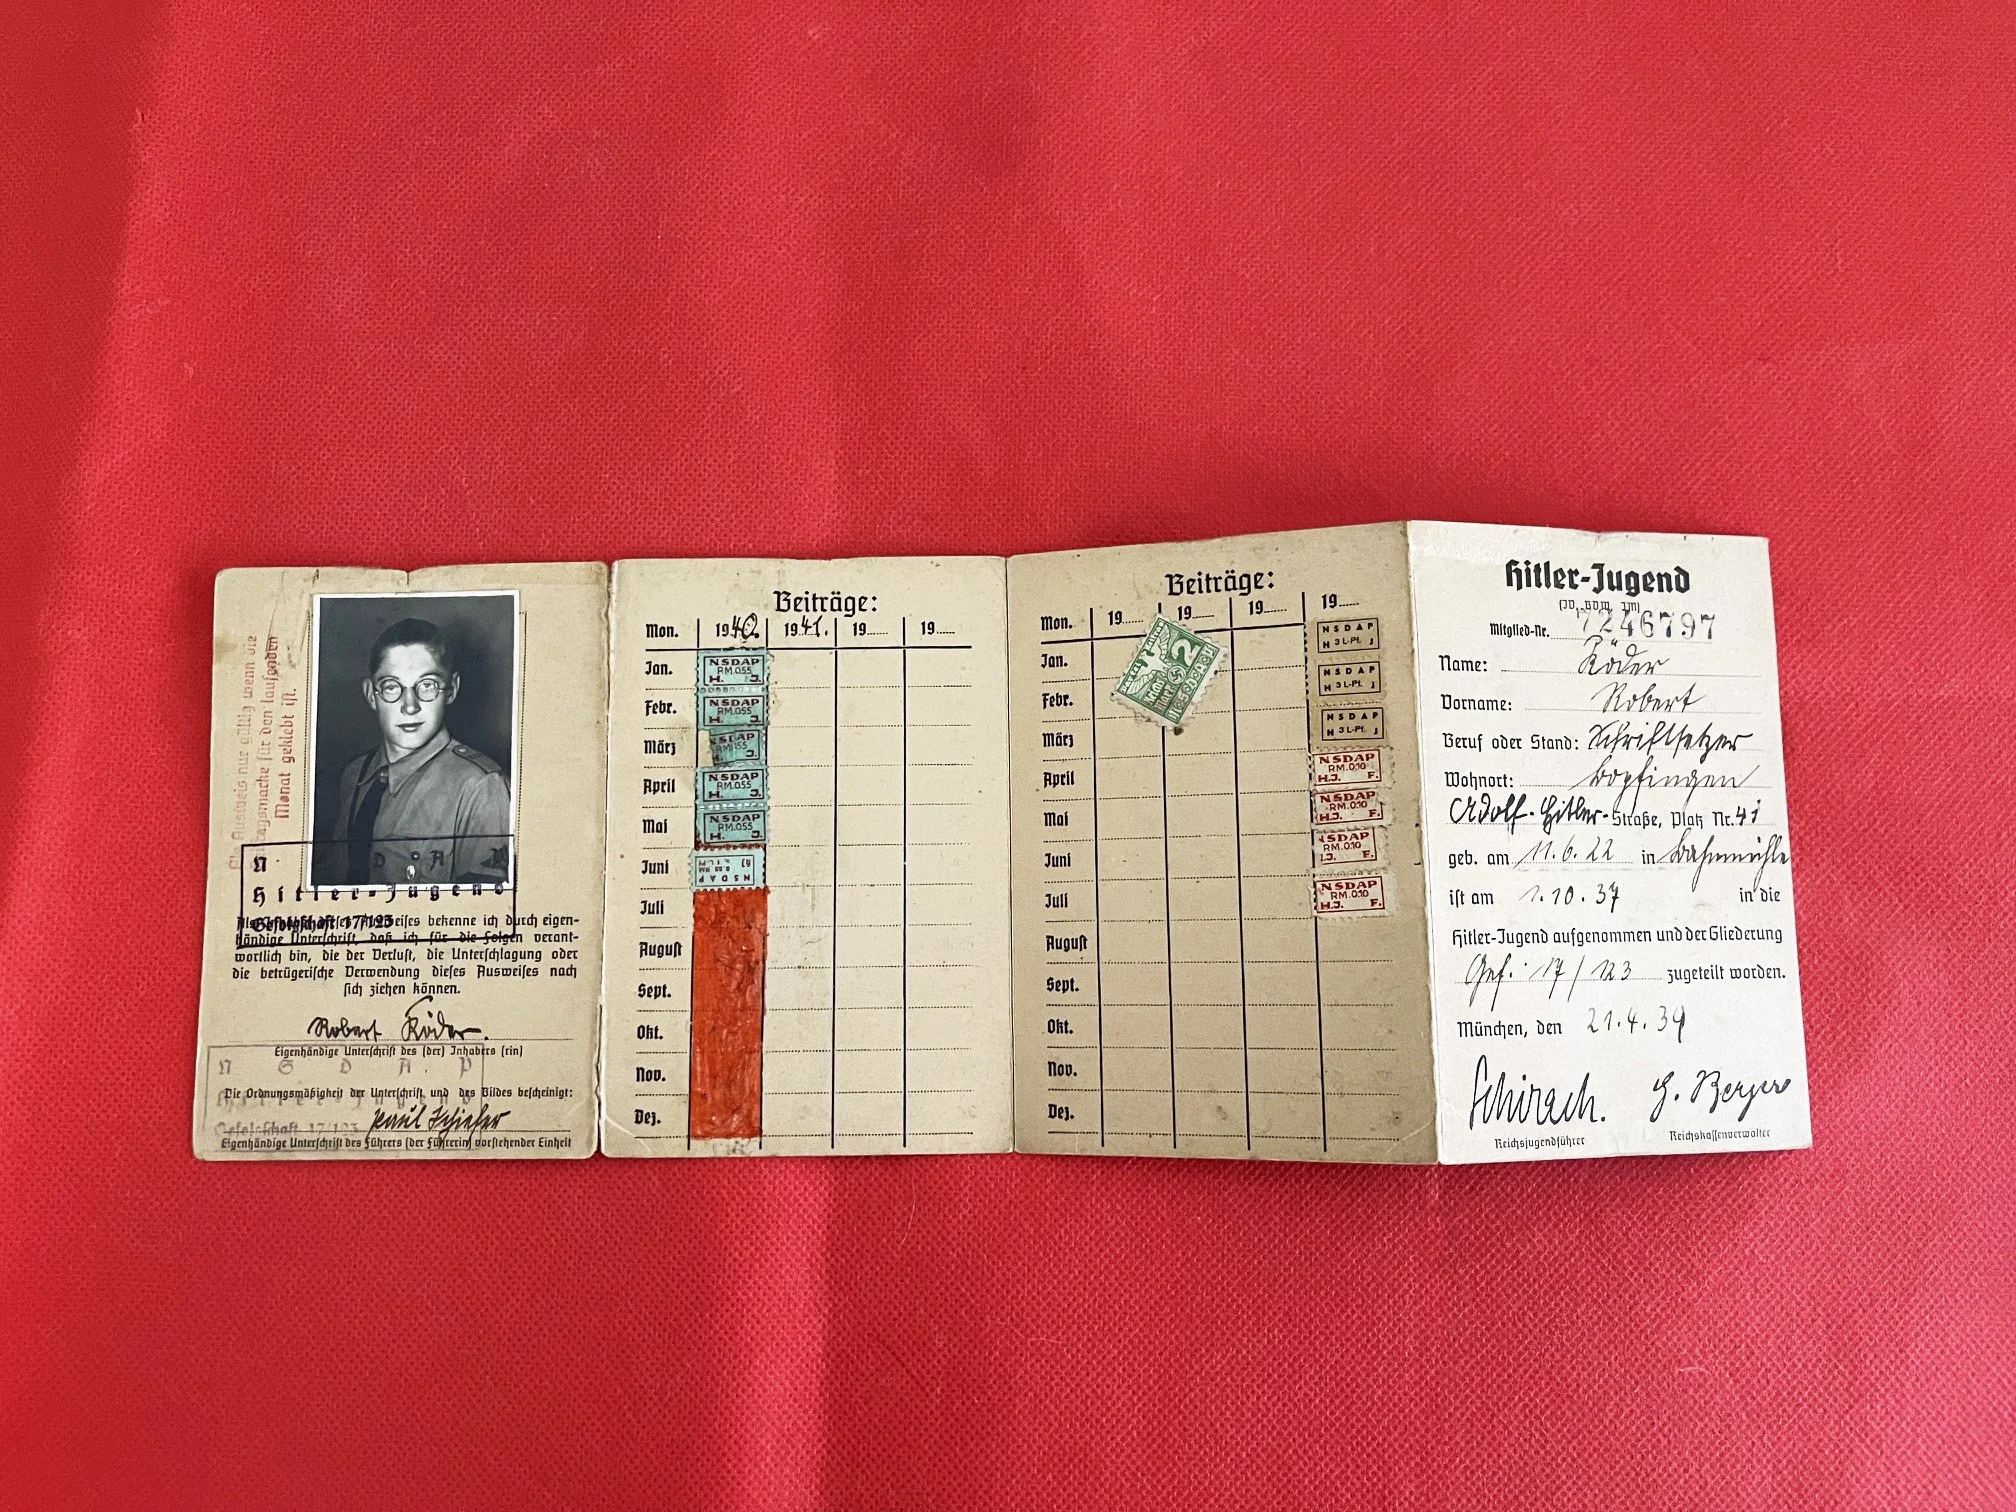 Ausweis nur gültig wenn die
Beitragsmarke für den laufenden
Monat geklebt ist.
N D A P
Hitler-Jugend
Gefolgschaft 17/123
Als Inhaber dieses Ausweises bekenne ich durch eigen-
händige Unterschrift, daß ich für die Folgen verant-
wortlich bin, die der Verlust, die Unterschlagung oder
die betrügerische Verwendung dieses Ausweises nach
sich ziehen können.
Robert Röder.
Eigenhändige Unterschrift des (der) Inhabers (rin)
N S D A P
Hitler-Jugend
Die Ordnungsmäßigkeit der Unterschrift und des Bildes bescheinigt:
Gefolgschaft 17/123
Paul
Eigenhändige Unterschrift des Führers (der Führerin) vorstehender Einheit
Beiträge:
Mon. 1940. 1941. 19 19
Jan. NSDAP RM.0.55 H. J.
Febr. NSDAP RM.0.55 H. J.
März NSDAP H. J.
April NSDAP RM.0.55 H. J.
Mai NSDAP RM.0.55 H. J.
Juni NSDAP 0.55 RM
Juli
August
Sept.
Okt.
Nov.
Dez.
Beiträge:
Mon. 19 19 19 19
2
Jan. NSDAP H 3 L-Pf. J
Febr. NSDAP H 3 L-Pf. J
März NSDAP H 3 L-Pf. J
April NSDAP RM.0.10 H.J. F.
Mai NSDAP RM.0.10 H.J. F.
Juni NSDAP RM.0.10 H.J. F.
Juli NSDAP RM.0.10 H.J. F.
August
Sept.
Okt.
Nov.
Dez.
Hitler-Jugend
(JV, BDM, JM)
Mitglied-Nr. 7246797
Name: Röder
Vorname: Robert
Beruf oder Stand: Schriftsetzer
Wohnort: Bopfingen
Adolf-Hitler-Straße, Platz Nr. 41
geb. am 11.6.22 in
ist am 1.10.37 in die
Hitler-Jugend aufgenommen und der Gliederung
Gef. 17/123 zugeteilt worden.
München, den 21.4.39
Schirach. Berger
Reichsjugendführer Reichskassenverwalter